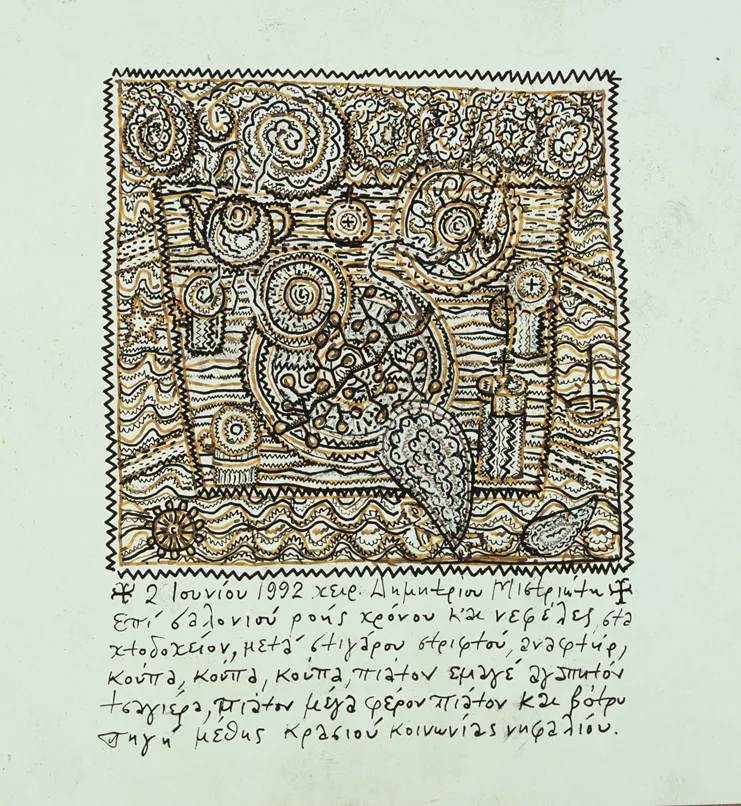 ✠ 2 Ιουνίου 1992 χειρ. Δημητρίου Μιστριώτη ✠
Επί σαλονιού ροής χρόνου και νεφέλες, στα
χτοδοχείον, μετά στιγάρου στριφτού, αναφτήρ,
κούπα, κούπα, κούπα, πιάτον εμαγέ αγαπητόν
τσαγιέρα, πιάτον μέγα φέρον πιάτον και βότρυ
πηγή μέθης κρασιού κοινωνίας νηφαλίου.